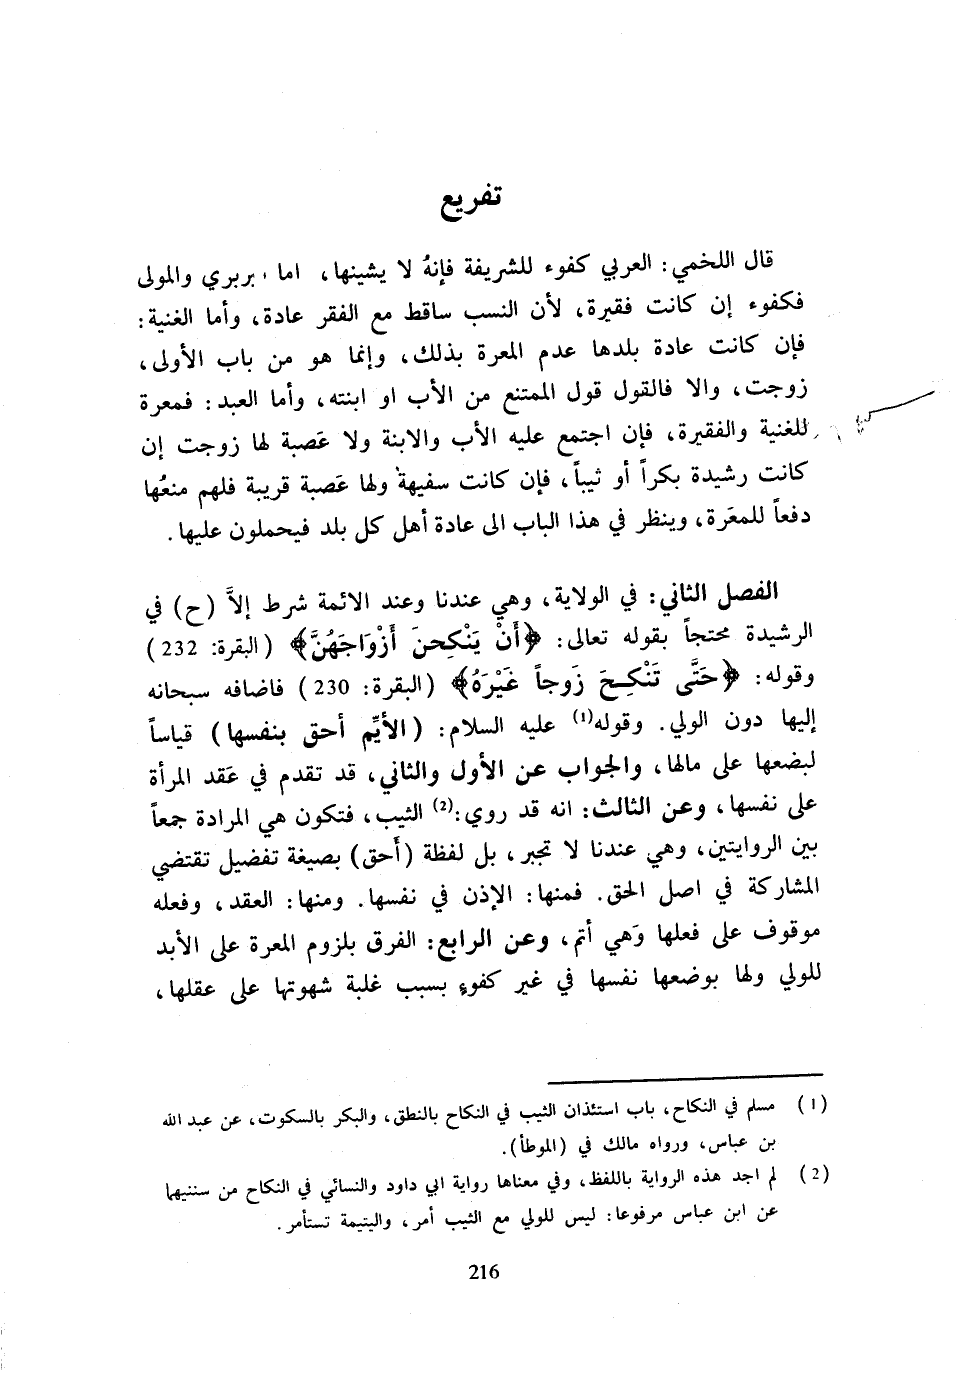 تفريع
قال اللخمي: العربي كفوء للشريفة فإنهُ لا يشينها، اما بربري والمولى
فكفوء إن كانت فقيرة، لأن النسب ساقط مع الفقر عادة، وأما الغنية:
فإن كانت عادة بلدها عدم المعرة بذلك، وإنما هو من باب الأولى،
زوجت، والا فالقول قول الممتنع من الأب او ابنته، وأما العبد: فمعرة
للغنية والفقيرة، فإن اجتمع عليه الأب والابنة ولا عَصبة لها زوجت إن
كانت رشيدة بكراً أو ثيباً، فإن كانت سفيهة ولها عَصبة قريبة فلهم منعُها
دفعاً للمعَرة، وينظر في هذا الباب الى عادة أهل كل بلد فيحملون عليها.
الفصل الثاني: في الولاية، وهي عندنا وعند الائمة شرط إلاَّ (ح) في
الرشيدة محتجاً بقوله تعالى: ﴿أَنْ يَنْكِحنَ أَزْوَاجَهُنَّ﴾ (البقرة: 232)
وقوله: ﴿حَتَّى تَنْكِحَ زَوجاً غَيْرَهُ﴾ (البقرة: 230) فاضافه سبحانه
إليها دون الولي. وقوله(1) عليه السلام: (الأيِّم أحق بنفسها) قياساً
لبضعها على مالها، والجواب عن الأول والثاني، قد تقدم في عَقد المرأة
على نفسها، وعن الثالث: انه قد روي:(2) الثيب، فتكون هي المرادة جمعاً
بين الروايتين، وهي عندنا لا تجبر، بل لفظة (أحق) بصيغة تفضيل تقتضي
المشاركة في اصل الحق. فمنها: الإذن في نفسها. ومنها: العقد، وفعله
موقوف على فعلها وَهي أتم، وعن الرابع: الفرق بلزوم المعرة على الأبد
للولي ولها بوضعها نفسها في غير كفوءٍ بسبب غلبة شهوتها على عقلها،
(1) مسلم في النكاح، باب استئذان الثيب في النكاح بالنطق، والبكر بالسكوت، عن عبد الله
بن عباس، ورواه مالك في (الموطأ).
(2) لم اجد هذه الرواية باللفظ، وفي معناها رواية ابي داود والنسائي في النكاح من سننيهما
عن ابن عباس مرفوعا: ليس للولي مع الثيب أمر، واليتيمة تستأمر.
216